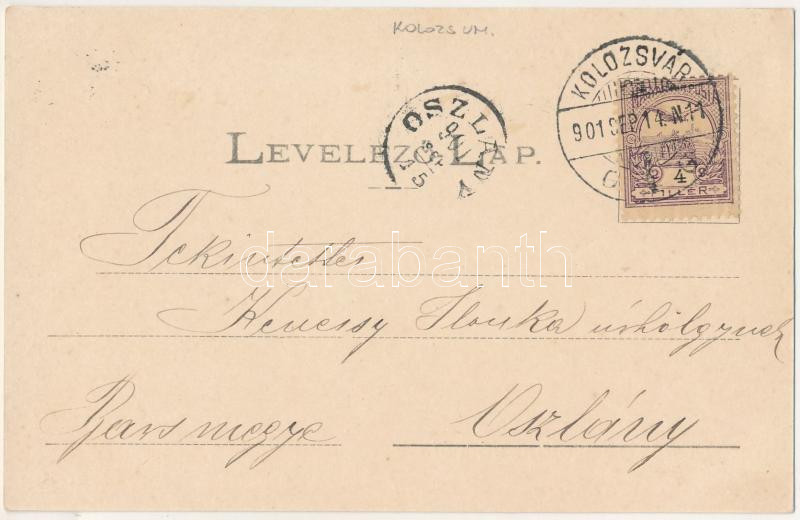 KOLOZS VM.
KOLOZSVÁR
901 SEP 14. N. 11
OSZLÁNY
901
SEP
15
LEVELEZŐ-LAP.
4
FILLÉR
Tekintetes
Kenessy Ilonka úrhölgynek
Bars megye Oszlány
darabanth